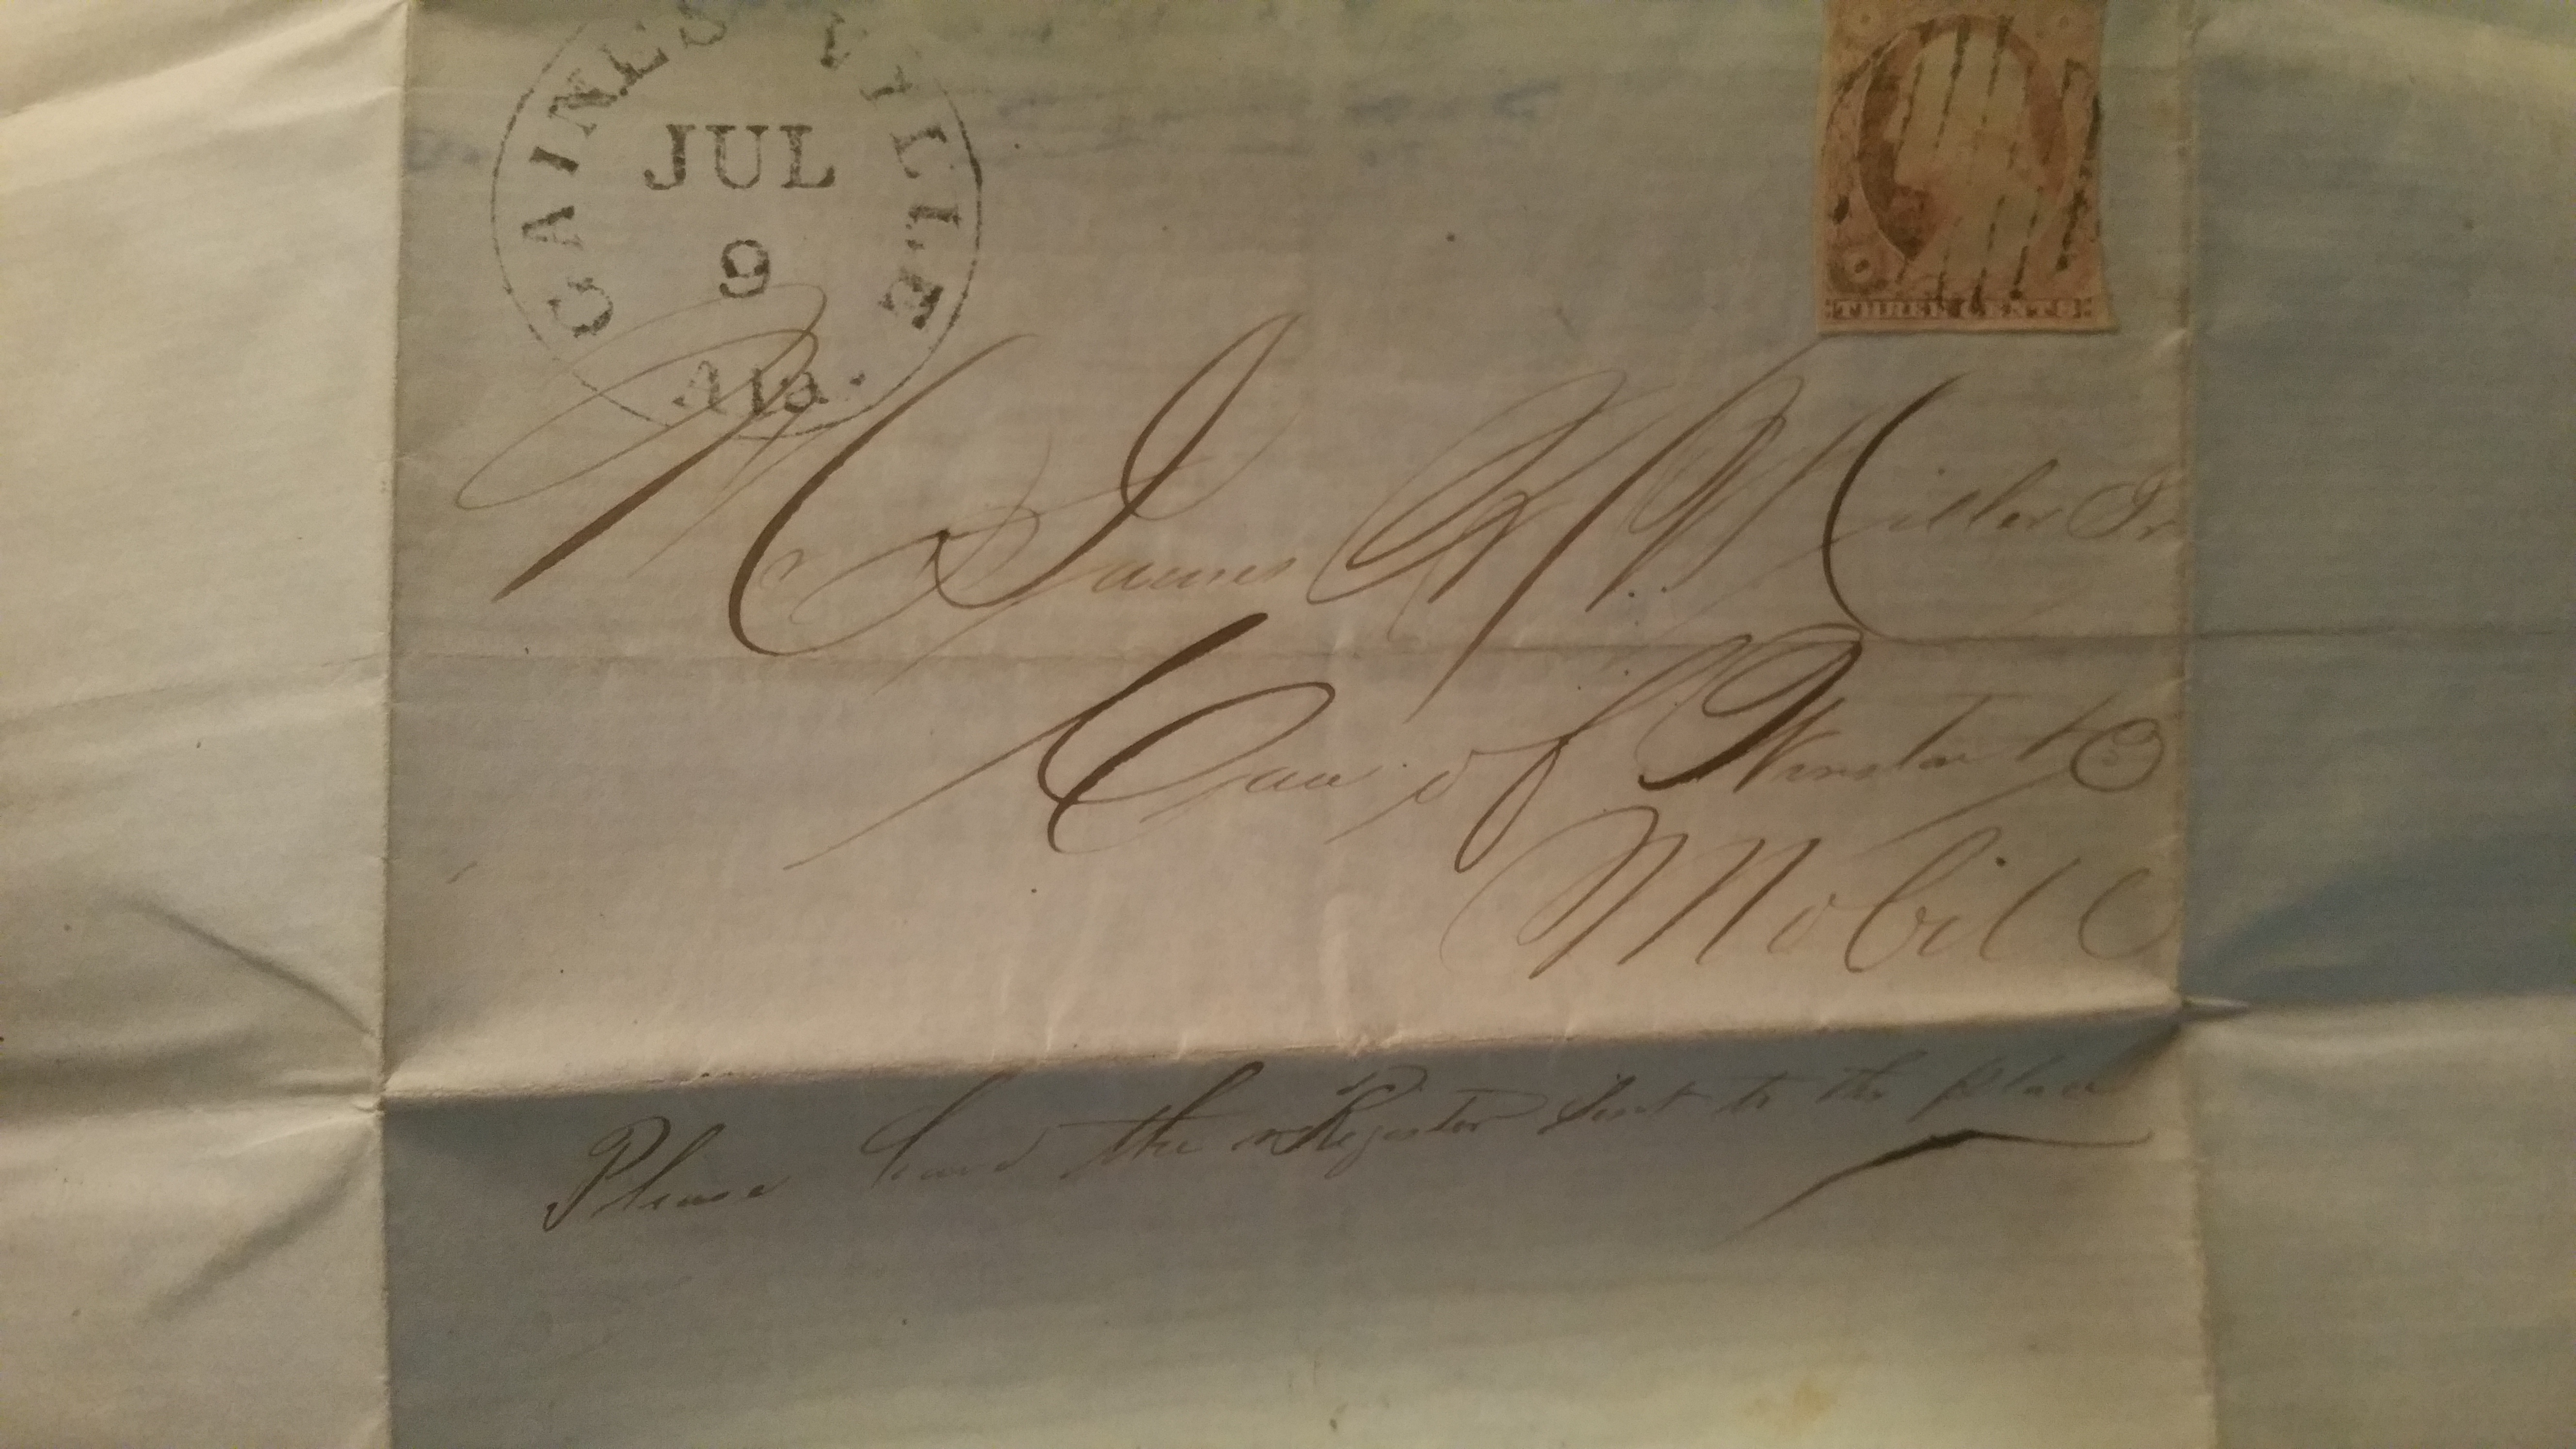 GAINESVILLE
JUL
9
Ala.
THREE CENTS
Mr James W. Miller Jr
Care of Winston & Co
Mobile
Please the Register sent to this place